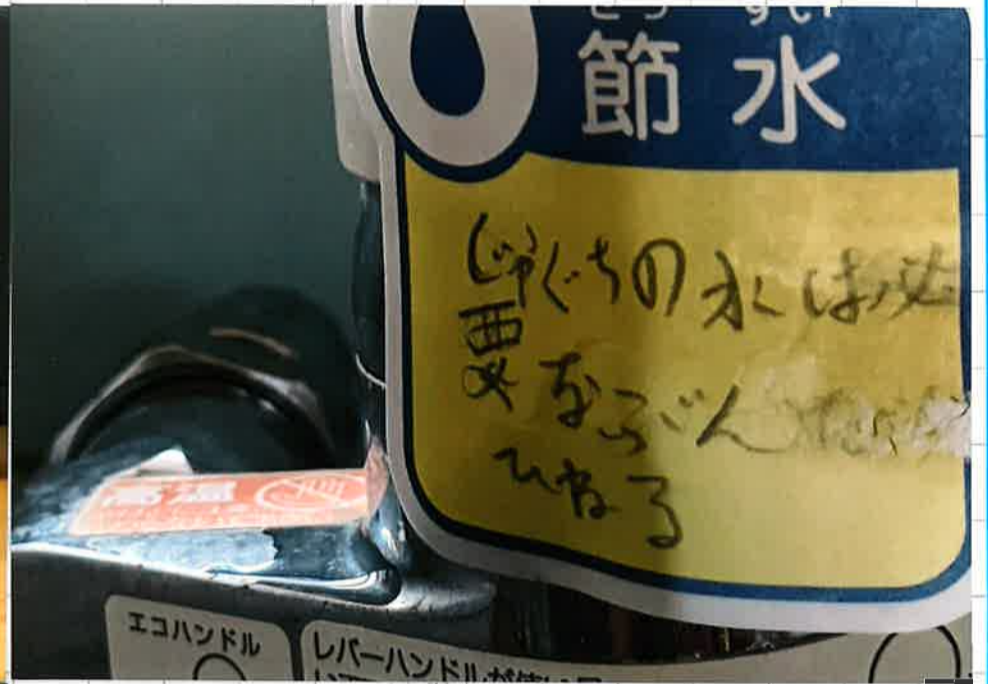 節水
じゃぐちの水は必
要なぶん
ひねる
高温
エコハンドル
レバーハンドルが